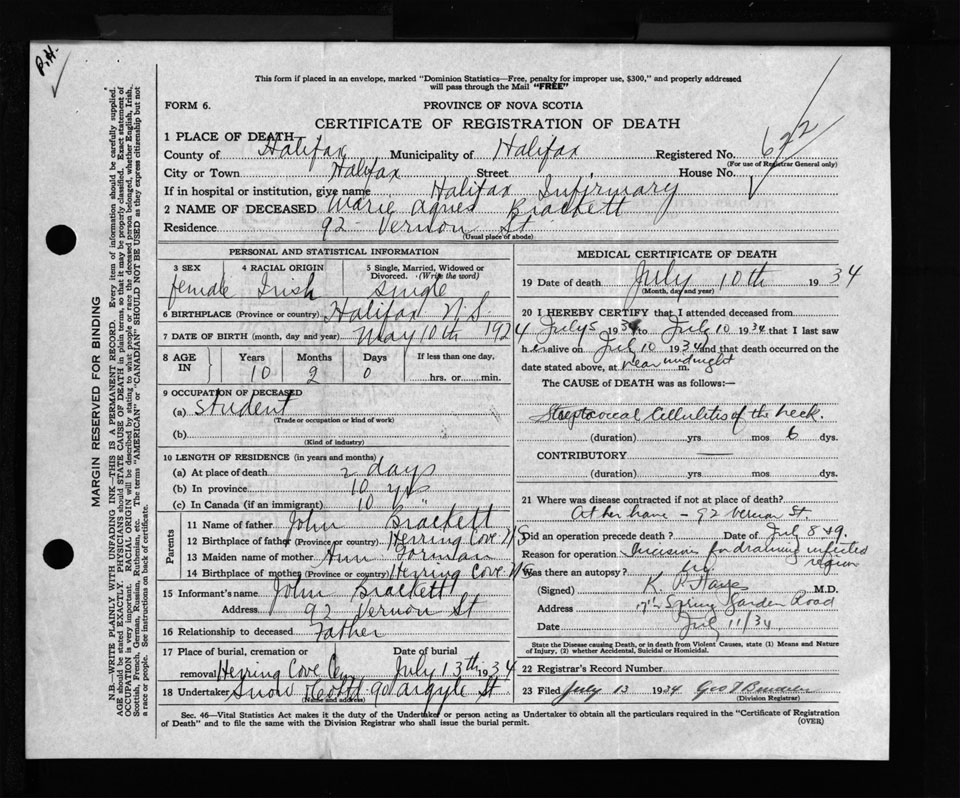 P.H.
This form if placed in an envelope, marked "Dominion Statistics—Free, penalty for improper use, $300," and properly addressed
will pass through the Mail "FREE"
FORM 6.
PROVINCE OF NOVA SCOTIA
CERTIFICATE OF REGISTRATION OF DEATH
1 PLACE OF DEATH
County of Halifax Municipality of Halifax Registered No. 622
(For use of Registrar General only)
City or Town Halifax Street House No.
If in hospital or institution, give name Halifax Infirmary
2 NAME OF DECEASED Marie Agnes Brackett
Residence 92 Vernon St
(Usual place of abode)
PERSONAL AND STATISTICAL INFORMATION
3 SEX 4 RACIAL ORIGIN 5 Single, Married, Widowed or
Divorced. (Write the word)
female Irish single
6 BIRTHPLACE (Province or country) Halifax N.S
7 DATE OF BIRTH (month, day and year) May 10th 1924
8 AGE IN Years Months Days If less than one day,
10 2 0 hrs. or min.
9 OCCUPATION OF DECEASED
(a) student
(Trade or occupation or kind of work)
(b)
(Kind of industry)
10 LENGTH OF RESIDENCE (in years and months)
(a) At place of death 2 days
(b) In province 10 yrs
(c) In Canada (if an immigrant) 10 "
Parents
11 Name of father John Brackett
12 Birthplace of father (Province or country) Herring Cove N/S
13 Maiden name of mother Ann Gorman
14 Birthplace of mother (Province or country) Herring Cove N/S
15 Informant's name John Brackett
Address 92 Vernon St
16 Relationship to deceased Father
17 Place of burial, cremation or Date of burial
removal Herring Cove Cem July 13th 1934
18 Undertaker Snow 90 Argyle St
(Name and address)
MEDICAL CERTIFICATE OF DEATH
19 Date of death July 10th 1934
(Month, day and year)
20 I HEREBY CERTIFY that I attended deceased from
July 5 1934 to July 10 1934 that I last saw
her alive on July 10 1934 and that death occurred on the
date stated above, at near midnight m.
The CAUSE of DEATH was as follows:—
Streptococcal Cellulitis of the neck.
(duration) yrs mos 6 dys.
CONTRIBUTORY —
(duration) yrs. mos. dys.
21 Where was disease contracted if not at place of death?
At her home – 92 Vernon St.
Did an operation precede death? Date of July 8 & 9.
Reason for operation Incisions for draining infected
region
Was there an autopsy? No
(Signed) K. P. M.D.
Address Spring Garden Road
Date July 11/34
State the Disease causing Death, or in death from Violent Causes, state (1) Means and Nature
of Injury, (2) whether Accidental, Suicidal or Homicidal.
22 Registrar's Record Number
23 Filed July 13 1934 Geo
(Division Registrar)
Sec. 46—Vital Statistics Act makes it the duty of the Undertaker or person acting as Undertaker to obtain all the particulars required in the "Certificate of Registration
of Death" and to file the same with the Division Registrar who shall issue the burial permit.
(OVER)
MARGIN RESERVED FOR BINDING
N.B.—WRITE PLAINLY WITH UNFADING INK—THIS IS A PERMANENT RECORD. Every item of information should be carefully supplied.
AGE should be stated EXACTLY. PHYSICIANS should STATE CAUSE OF DEATH in plain terms, so that it may be properly classified. Exact statement of
OCCUPATION is very important. RACIAL ORIGIN will be described by stating to what people or race the deceased person belonged, whether English, Irish,
Scottish, French, German, Russian, Ruthenian, etc. The terms "AMERICAN" or "CANADIAN" SHOULD NOT BE USED as they express citizenship but not
a race or people. See instructions on back of certificate.